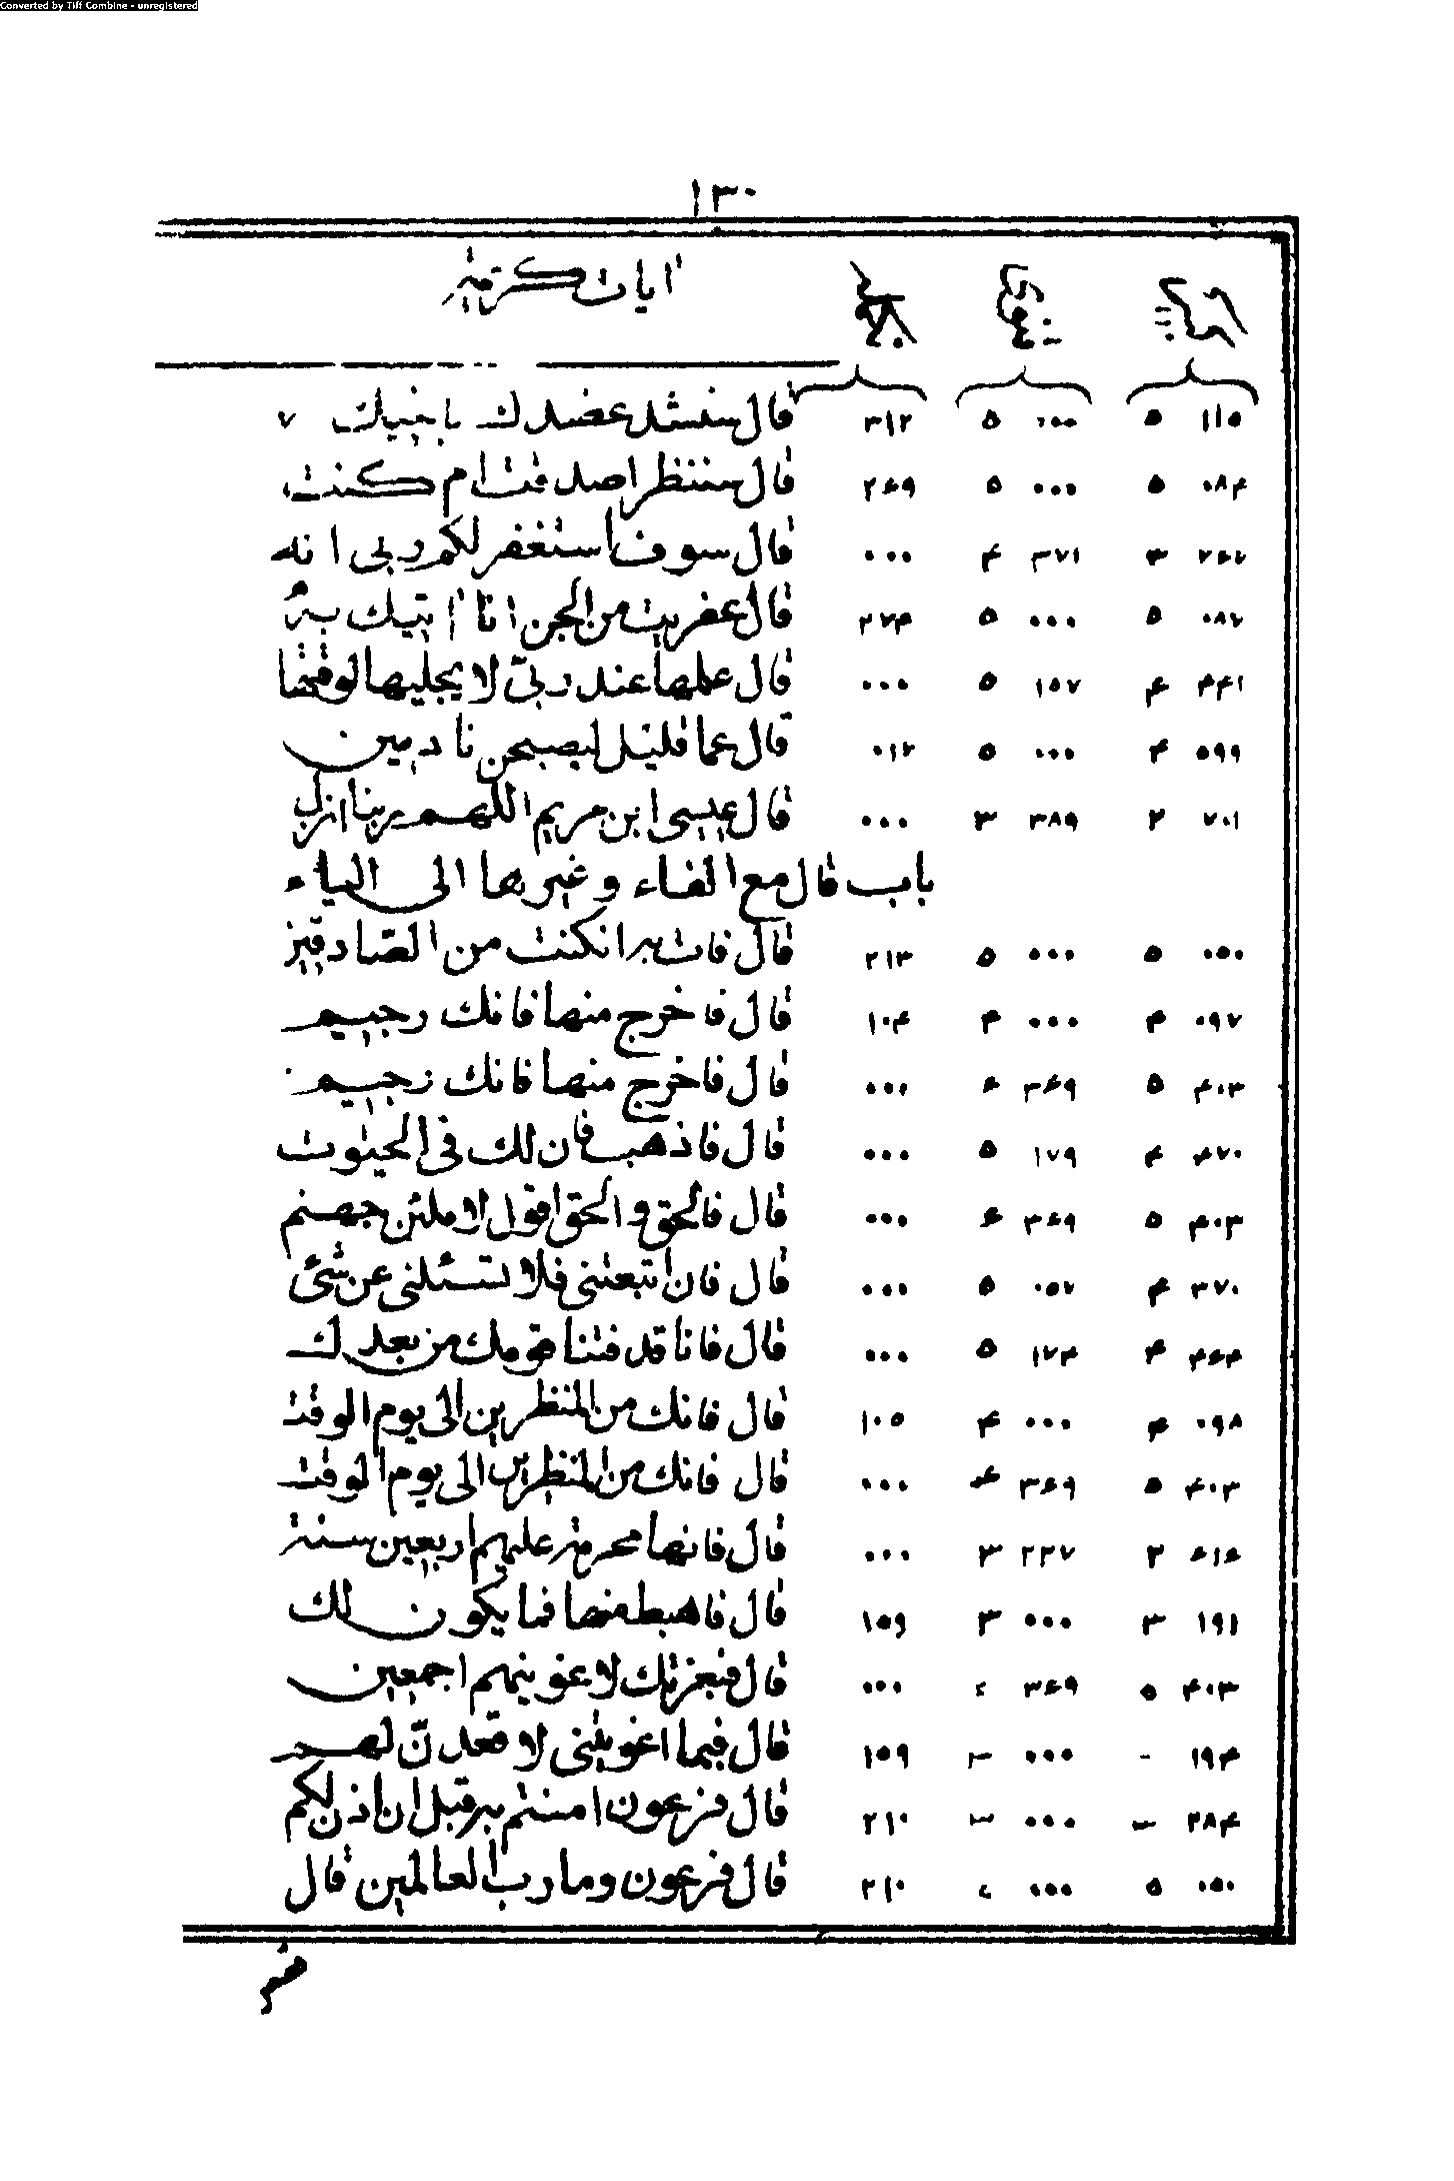 Converted by Tiff Combine - unregistered
١٣٠
ايات كريمة
١١٥ ٥ ٠٠٠ ٥ ٣١٢ قال سنشد عضدك باخيك ٧
٠٨۴ ٥ ٠٠٠ ٥ ٢۶٩ قال سننظر اصدقت ام كنت
٧۶٧ ٣ ٣٧١ ۴ ٠٠٠ قال سوف استغفر لكم ربى انه
٠٨٧ ٥ ٠٠٠ ٥ ٢٧۴ قال عفريت من الجن انا اتيك به
۴۴١ ۴ ١٥٧ ٥ ٠٠٠ قال علمها عند ربى لا يجليها لوقتها
٥٩٩ ۴ ٠٠٠ ٥ ٠١٢ قال عما قليل ليصبحن نادمين
٧٠١ ٢ ٣٨٩ ٣ ٠٠٠ قال عيسى ابن مريم اللهم ربنا انزل
باب قال مع الفاء وغيرها الى الياء
٠٥٠ ٥ ٠٠٠ ٥ ٢١٣ قال فات به ان كنت من الصّادقين
٠٩٧ ۴ ٠٠٠ ۴ ١٠۴ قال فاخرج منها فانك رجيم
۴٠٣ ٥ ٣۶٩ ۶ ٠٠٠ قال فاخرج منها فانك رجيم
۴٧٠ ۴ ١٧٩ ٥ ٠٠٠ قال فاذهب فان لك فى الحيٰوت
۴٠٣ ٥ ٣۶٩ ۶ ٠٠٠ قال فالحق والحق اقول لاملئن جهنم
٣٧٠ ۴ ٠٥٧ ٥ ٠٠٠ قال فان اتبعتنى فلا تسئلنى عن شئ
۴۶۴ ۴ ١٧۴ ٥ ٠٠٠ قال فانا قد فتنا قومك من بعدك
٠٩٨ ۴ ٠٠٠ ۴ ١٠٥ قال فانك من المنظرين الى يوم الوقت
۴٠٣ ٥ ٣۶٩ ۶ ٠٠٠ قال فانك من المنظرين الى يوم الوقت
۶١۶ ٢ ٢٢٧ ٣ ٠٠٠ قال فانها محرمة عليهم اربعين سنة
١٩١ ٣ ٠٠٠ ٣ ١٥٩ قال فاهبط منها فما يكون لك
۴٠٣ ٥ ٣۶٩ ٠٠٠ قال فبعزتك لاغوينهم اجمعين
١٩۴ ٠٠٠ ١٥٩ قال فبما اغويتنى لاقعدنّ لهم
٢٨۴ ٠٠٠ ٢١٠ قال فرعون امنتم به قبل ان اذن لكم
٠٥٠ ٥ ٠٠٠ ٢١٠ قال فرعون وما رب العالمين قال